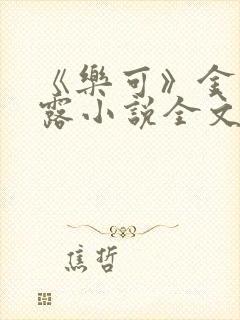 《樂可》金
露小說全文
焦哲